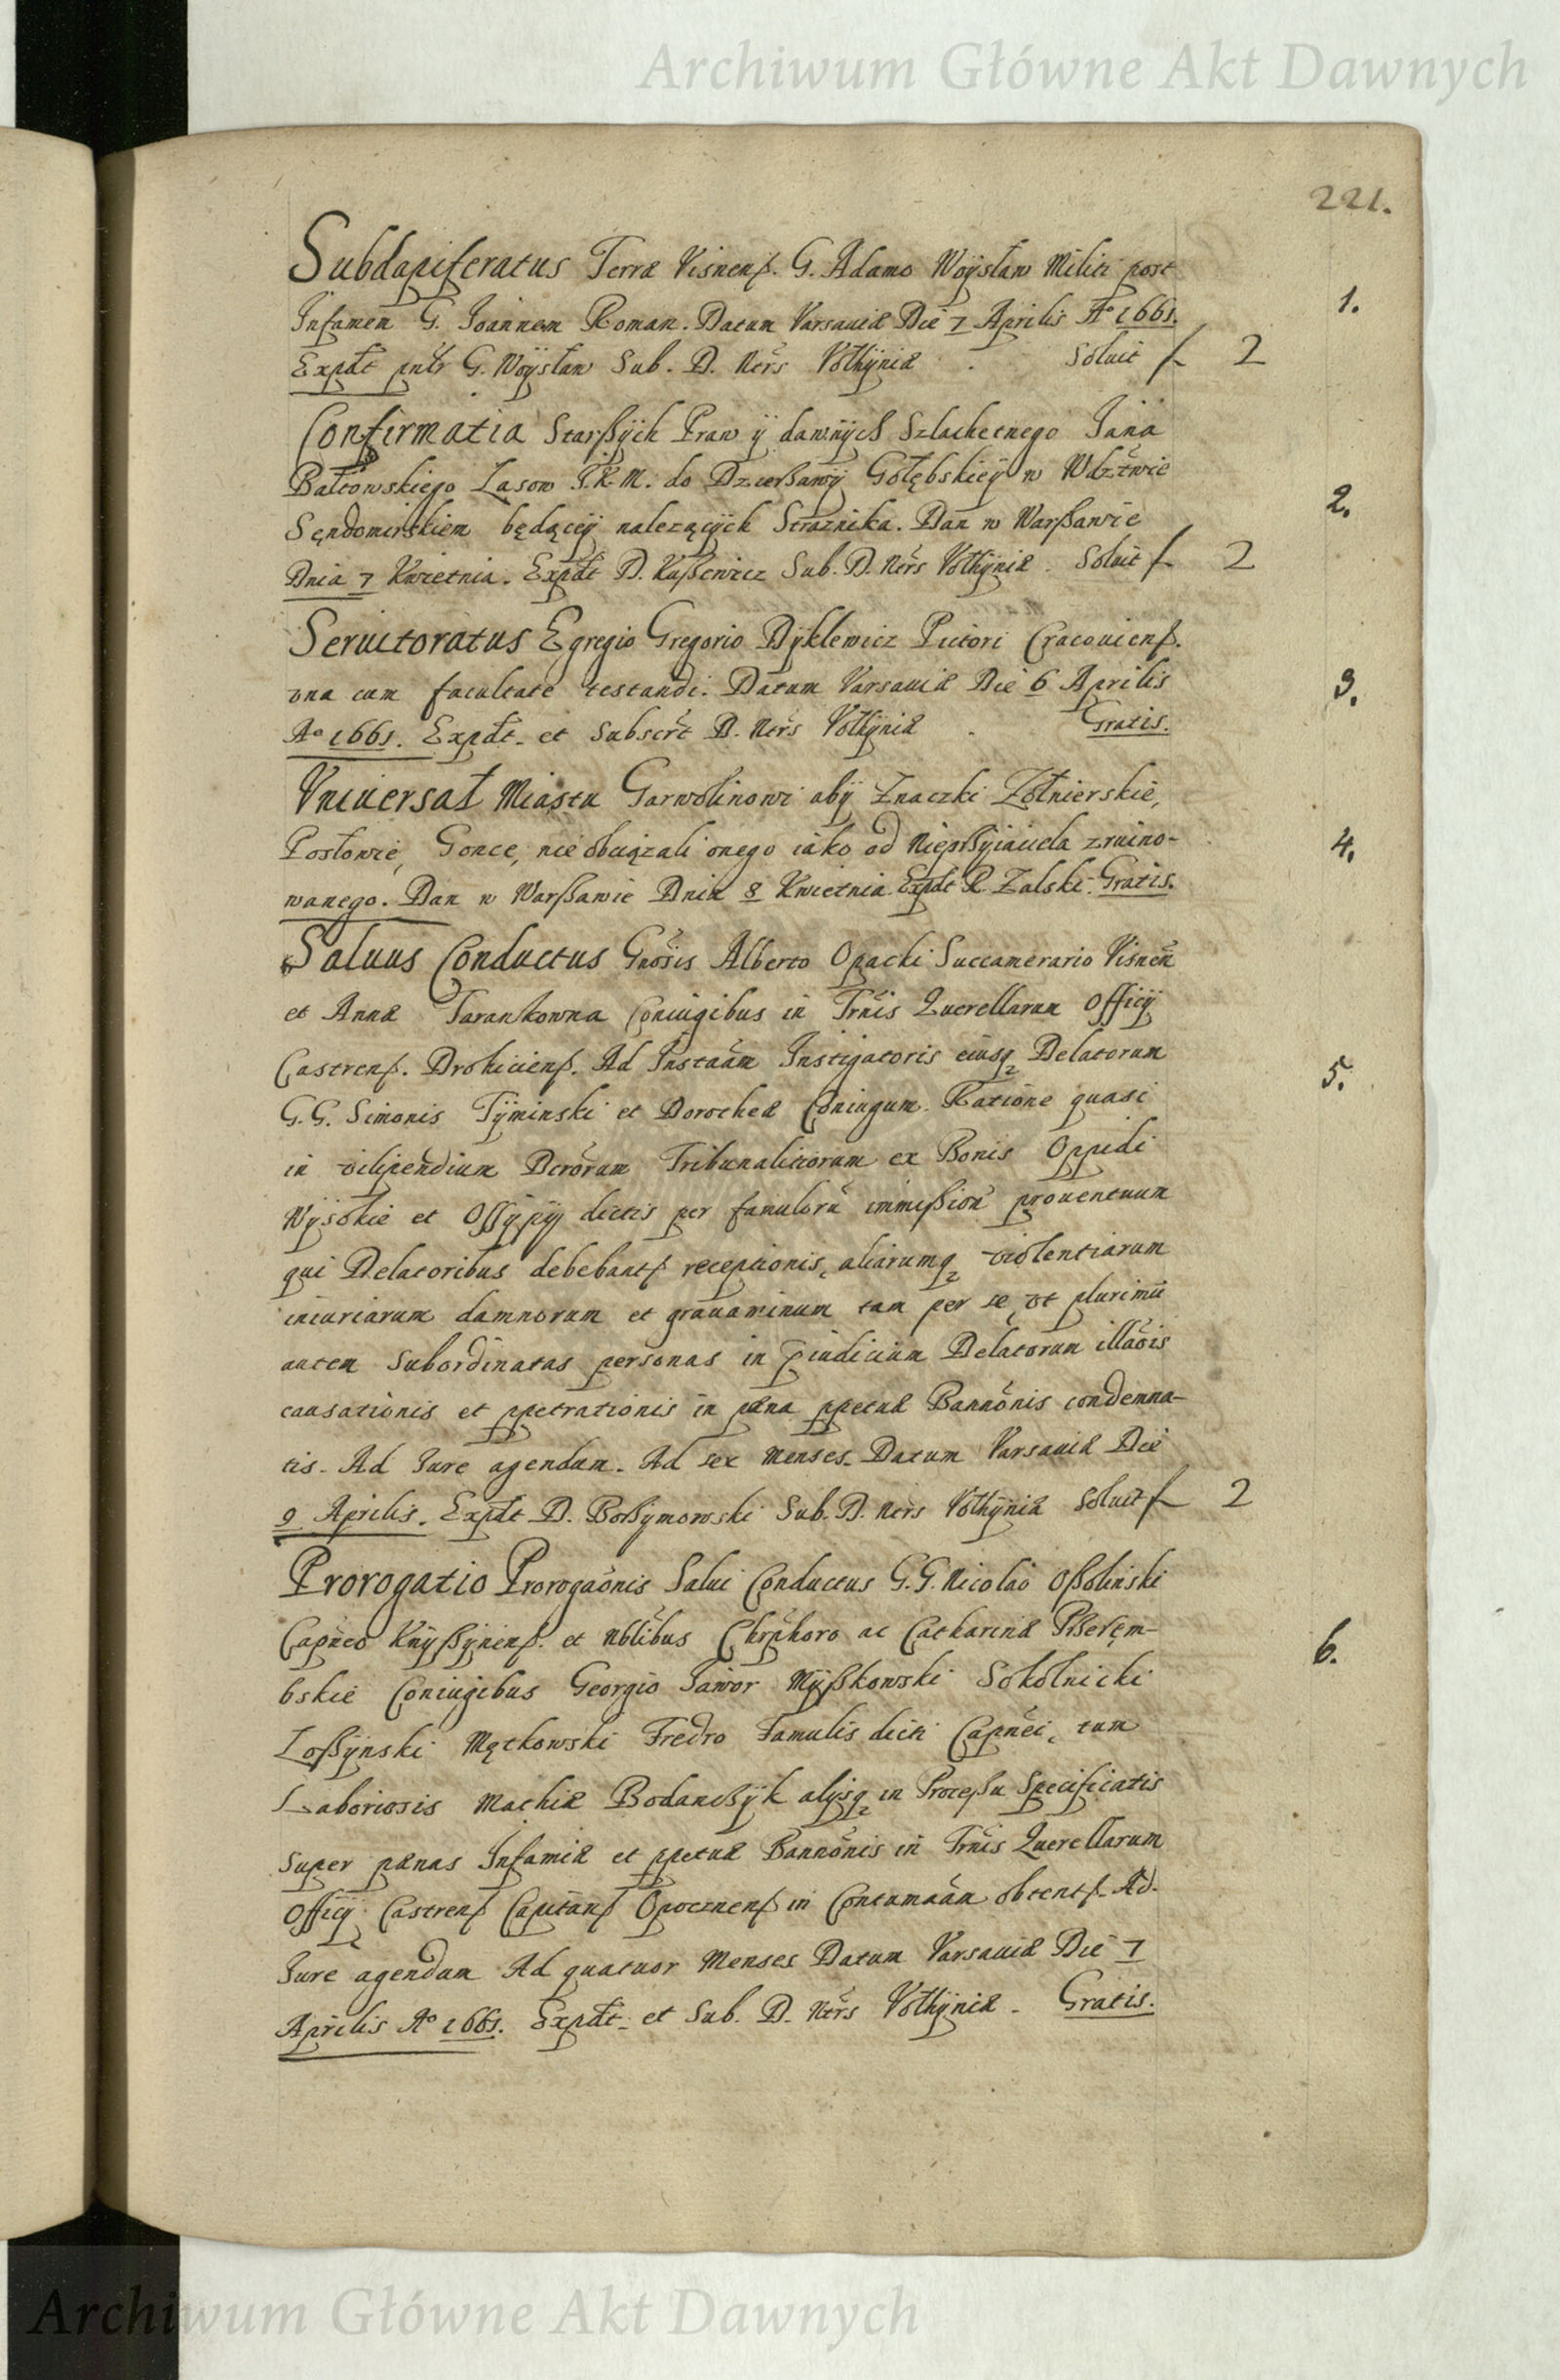 Archiwum Główne Akt Dawnych
221.
Subdapiferatus Terræ Visnenß. G. Adamo Woysław Militi post
Infamem G. Joannem Roman. Datum Varsaviæ Die 7 Aprilis Aº 1661.
Expdt pntr G. Woysław Sub. D. Ntrs Vołhÿniæ . Soluit f 2
1.
Confirmatia Starßÿch Praw ÿ dawnÿch Szlachetnego Jana
Bałtowskiego Lasow J.K.M. do Dzierßawÿ Gołębskieÿ w Wdztwie
Sęndomirskiem będąceÿ nalezącÿch Straznika. Dan w Warßawie
Dnia 7 Kwietnia. Expdt D. Kußewicz Sub. D. Ntrs Vołhÿniæ. Soluit f 2
2.
Seruitoratus Egregio Gregorio Dÿklewicz Pictori Cracouienß.
vna cum facultate testandi. Datum Varsauiæ Die 6 Aprilis
Aº 1661. Expdt. et Subscrt D. Ntrs Vołhÿniæ . Gratis.
3.
Vniuersał Miastu Garwolinowi abÿ Znaczki Zołnierskie,
Posłowie, Gonce, nie obciązali onego iako od Nieprßÿiaciela zruino-
wanego. Dan w Warßawie Dnia 8 Kwietnia. Expdt R. Zalski. Gratis.
4.
Saluus Conductus Gnosis Alberto Opacki Succamerario Visnen
et Annæ Tarankowna Coniugibus in Trnis Querellarum Officÿ
Castrenß. Drohicienß. Ad Instaam Instigatoris eiusq Delatorum
G.G. Simonis Tÿminski et Dorotheæ Coniugum. Ratione quasi
in vilipendium Dcrorum Tribunalitiorum ex Bonis Oppidi
Wÿsokie et Ossÿpÿ dictis per famuloru immißion prouentuum
qui Delatoribus debebantß receptionis, aliarumq violentiarum
iniuriarum damnorum et grauaminum tam per se, vt plurimu
autem subordinatas personas in piudicium Delatorum illaois
causationis et ppetrationis in pæna ppetuæ Bannonis condemna-
tis. Ad Jure agendum. Ad sex Menses. Datum Varsauiæ Die
9 Aprilis. Expdt D. Borßymowski Sub. D. Ntrs Vołhÿniæ Soluit f 2
5.
Prorogatio Prorogaonis Salui Conductus G.G. Nicolao Oßolinski
Capneo Knÿßÿnenß. et Nblibus Chrphoro ac Catharinæ Pßerem-
bskie Coniugibus Georgio Jawor Mÿßkowski Sokolnicki
Loßÿnski Mątkowski Fredro Famulis dicti Capnei, tum
Laboriosis Mathiæ Bodanczÿk alÿsq in Proceßu Specificatis
super pænas Infamiæ et ppetuæ Bannonis in Trnis Querellarum
Officÿ Castrenß Capitanß Opocznenß in Contumaam obtentß. Ad.
Jure agendum Ad quatuor Menses Datum Varsauiæ Die 7
Aprilis Aº 1661. Expdt. et Sub. D. Ntrs Vołhÿniæ. Gratis.
6.
Archiwum Główne Akt Dawnych